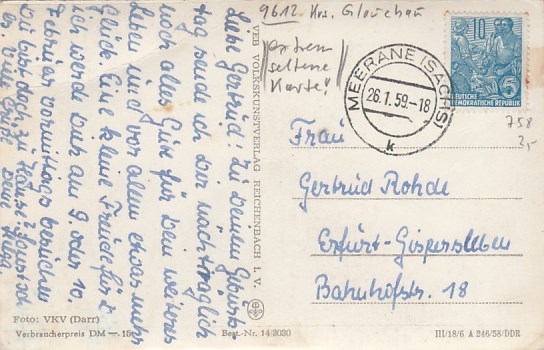 9612 Krs. Glauchau
extrem
seltene
Karte!
Liebe Gertrud! Zu Deinem Geburts-
tag sende ich Dir nachträglich
noch alles Gute für Dein weiteres
Leben und vor allem etwas mehr
Glück. Eine kleine Freude für Dich
ich werde Dich am 9. oder 10.
Februar vormittags besuchen
Du bist doch zu Hause? Sonst
viele Grüße Deine
VEB VOLKSKUNSTVERLAG REICHENBACH I. V.
MEERANE (SACHS)
26.1.59.-18
k
10
5
DEUTSCHE
DEMOKRATISCHE REPUBLIK
758
2,-
Frau
Gertrud Rohde
Erfurt-Gispersleben
Bahnhofstr. 18
Foto: VKV (Darr)
Verbraucherpreis DM —.15
Best.-Nr. 14/2020
III/18/6 A 246/58/DDR